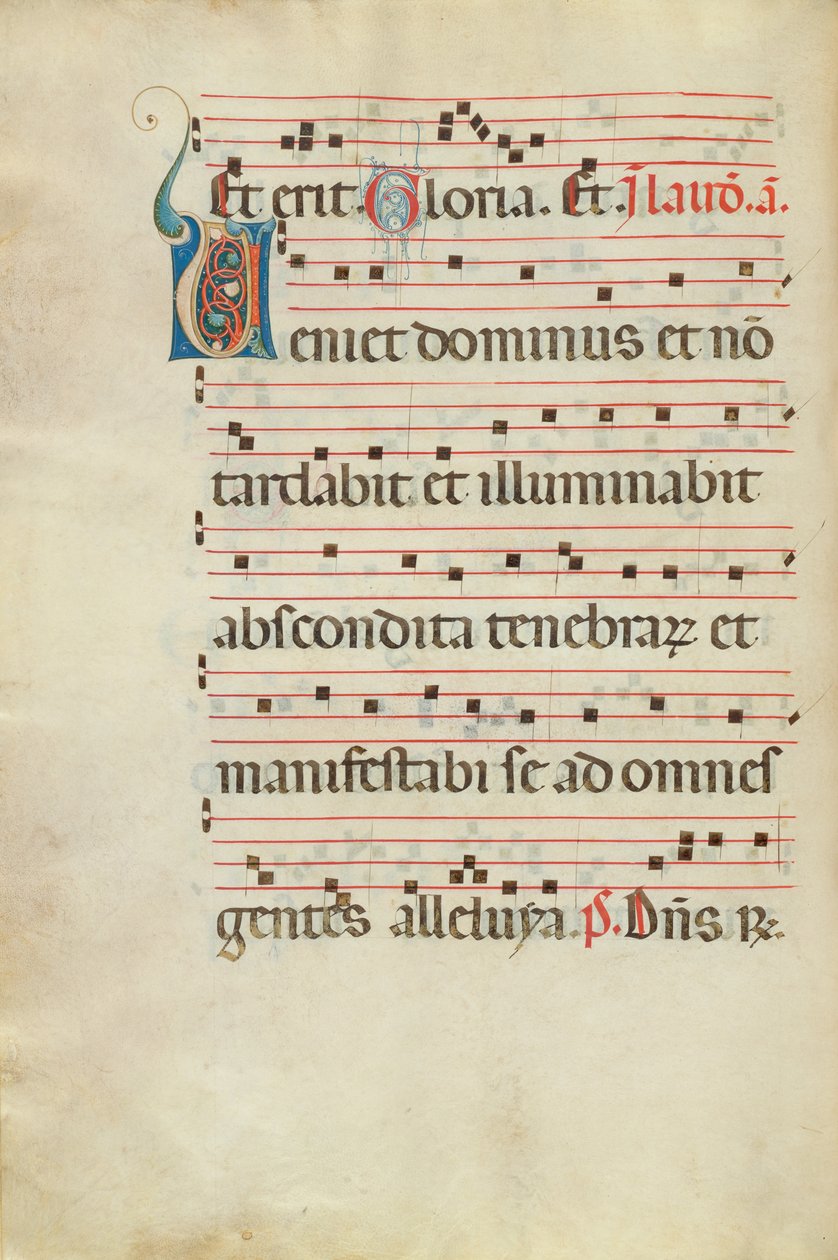 Et erit. Gloria. Et. J̃ laud̃. ã.
Ueniet dominus et nō
tardabit et illuminabit
abſcondita tenebraꝝ et
manifeſtabi ſe ad omneſ
gentes alleluya. pſ. Dñs ꝶ.